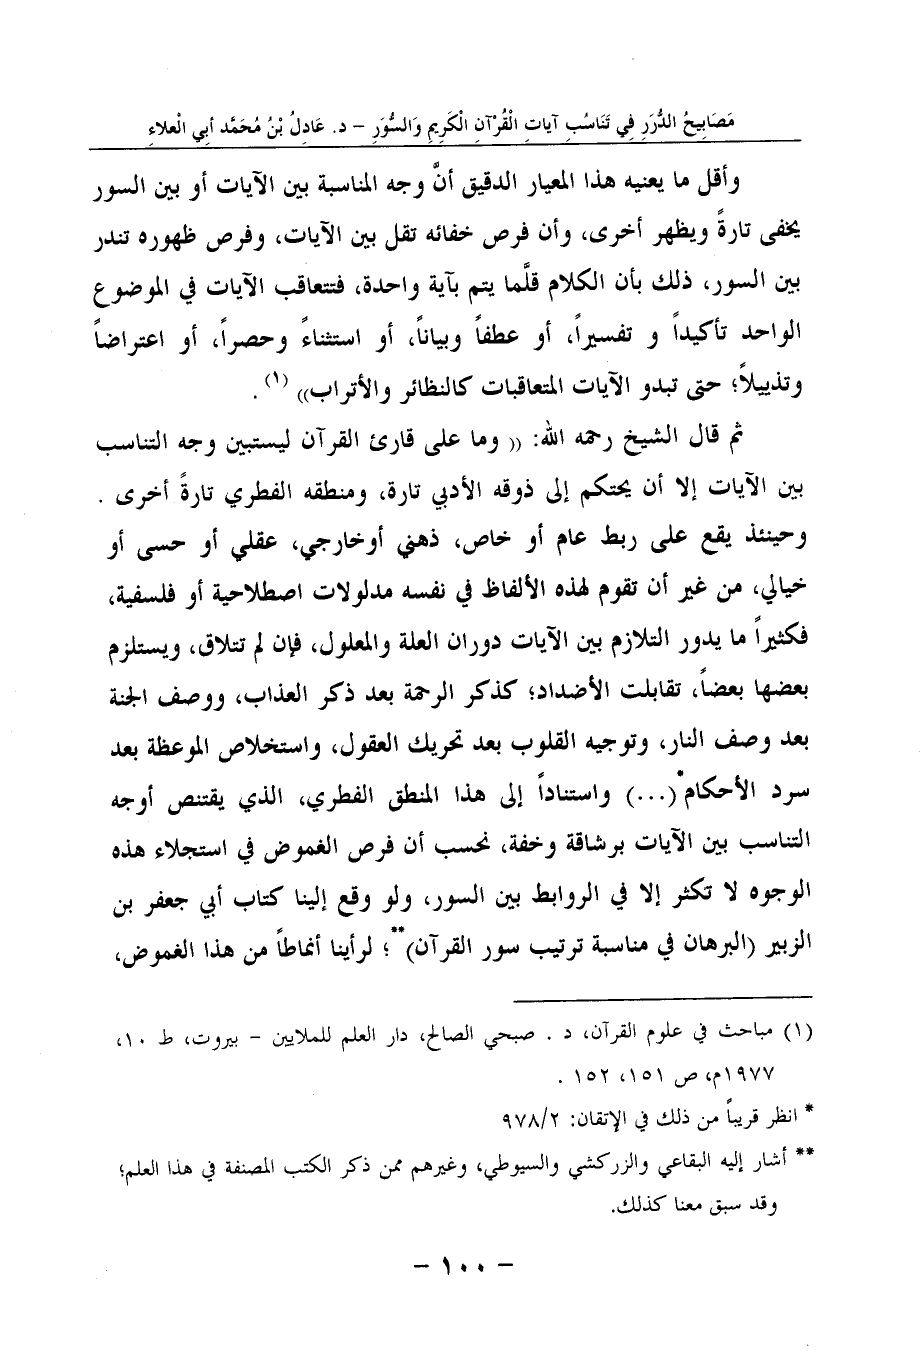 مَصَابِيحُ الدُّرَرِ فِي تَنَاسُبِ آيَاتِ الْقُرْآنِ الْكَرِيمِ وَالسُّوَرِ – د. عَادِلُ بْنُ مُحَمَّد أَبِي الْعَلاء
وأقل ما يعنيه هذا المعيار الدقيق أنَّ وجه المناسبة بين الآيات أو بين السور
يخفى تارةً ويظهر أخرى، وأن فرص خفائه تقل بين الآيات، وفرص ظهوره تندر
بين السور، ذلك بأن الكلام قلَّما يتم بآية واحدة، فتتعاقب الآيات في الموضوع
الواحد تأكيداً و تفسيراً، أو عطفاً وبياناً، أو استثناءً وحصراً، أو اعتراضاً
وتذييلاً؛ حتى تبدو الآيات المتعاقبات كالنظائر والأتراب)) (١) .
ثم قال الشيخ رحمه الله: (( وما على قارئ القرآن ليستبين وجه التناسب
بين الآيات إلا أن يحتكم إلى ذوقه الأدبي تارة، ومنطقه الفطري تارةً أخرى .
وحينئذ يقع على ربط عام أو خاص، ذهني أوخارجي، عقلي أو حسى أو
خيالي، من غير أن تقوم لهذه الألفاظ في نفسه مدلولات اصطلاحية أو فلسفية،
فكثيراً ما يدور التلازم بين الآيات دوران العلة والمعلول، فإن لم تتلاق، ويستلزم
بعضها بعضاً، تقابلت الأضداد؛ كذكر الرحمة بعد ذكر العذاب، ووصف الجنة
بعد وصف النار، وتوجيه القلوب بعد تحريك العقول، واستخلاص الموعظة بعد
سرد الأحكام* (...) واستناداً إلى هذا المنطق الفطري، الذي يقتنص أوجه
التناسب بين الآيات برشاقة وخفة، نحسب أن فرص الغموض في استجلاء هذه
الوجوه لا تكثر إلا في الروابط بين السور، ولو وقع إلينا كتاب أبي جعفر بن
الزبير (البرهان في مناسبة ترتيب سور القرآن)**؛ لرأينا أنماطاً من هذا الغموض،
(١) مباحث في علوم القرآن، د . صبحي الصالح، دار العلم للملايين – بيروت، ط ١٠،
١٩٧٧م، ص ١٥١، ١٥٢ .
* انظر قريباً من ذلك في الإتقان: ٩٧٨/٢
** أشار إليه البقاعي والزركشي والسيوطي، وغيرهم ممن ذكر الكتب المصنفة في هذا العلم؛
وقد سبق معنا كذلك.
– ١٠٠ –